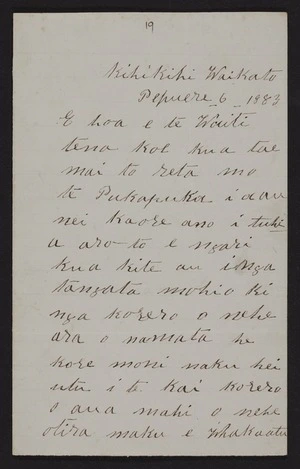 19
Kihikihi Waikato
Pepuere 6 1883
E hoa e te Waiti
tena koe kua tae
mai to reta mo
te Pukapuka i a au
nei kaore ano i tuhi
a aro to e ngari
kua kite au i nga
tangata mohio ki
nga korero o nehe
ara o namata he
kore moni naku hei
utu i te kai korero
o aua mahi o nehe
otira maku e whakaatu